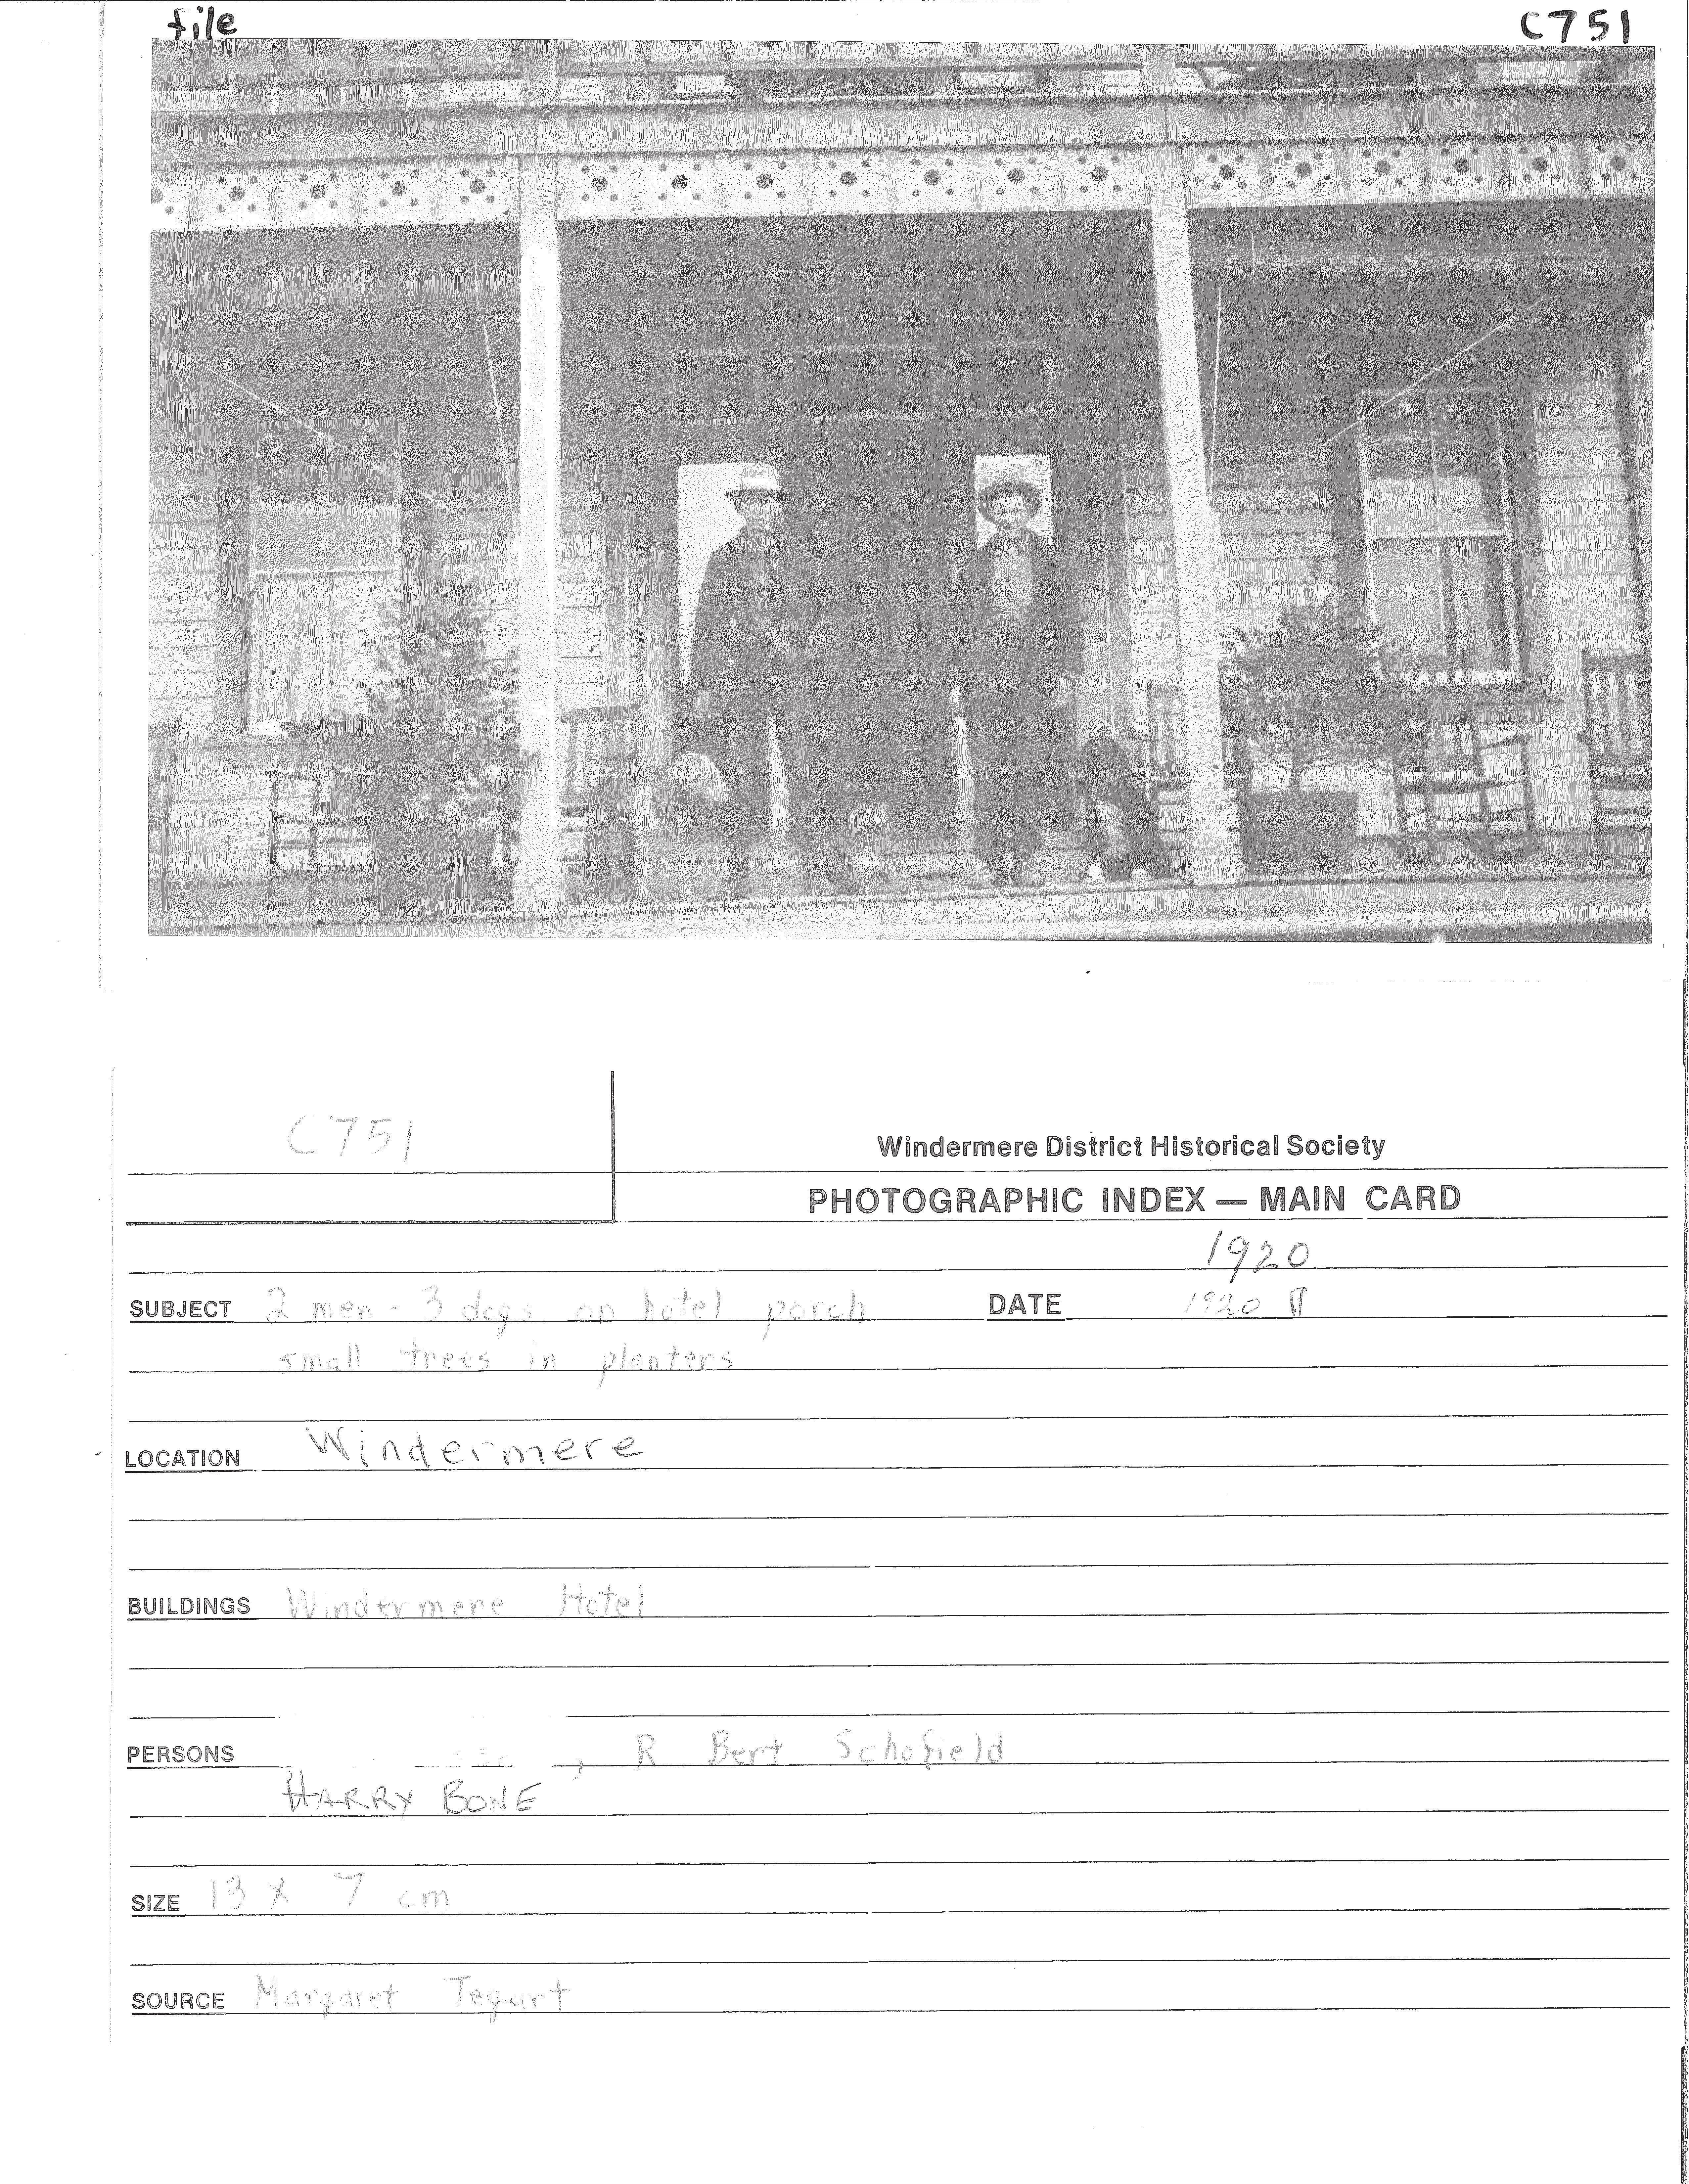 file C751
C751
Windermere District Historical Society
PHOTOGRAPHIC INDEX — MAIN CARD
1920
SUBJECT 2 men - 3 dogs on hotel porch DATE 1920
small trees in planters
LOCATION Windermere
BUILDINGS Windermere Hotel
PERSONS , R Bert Schofield
HARRY BONE
SIZE 13 X 7 cm
SOURCE Margaret Tegart